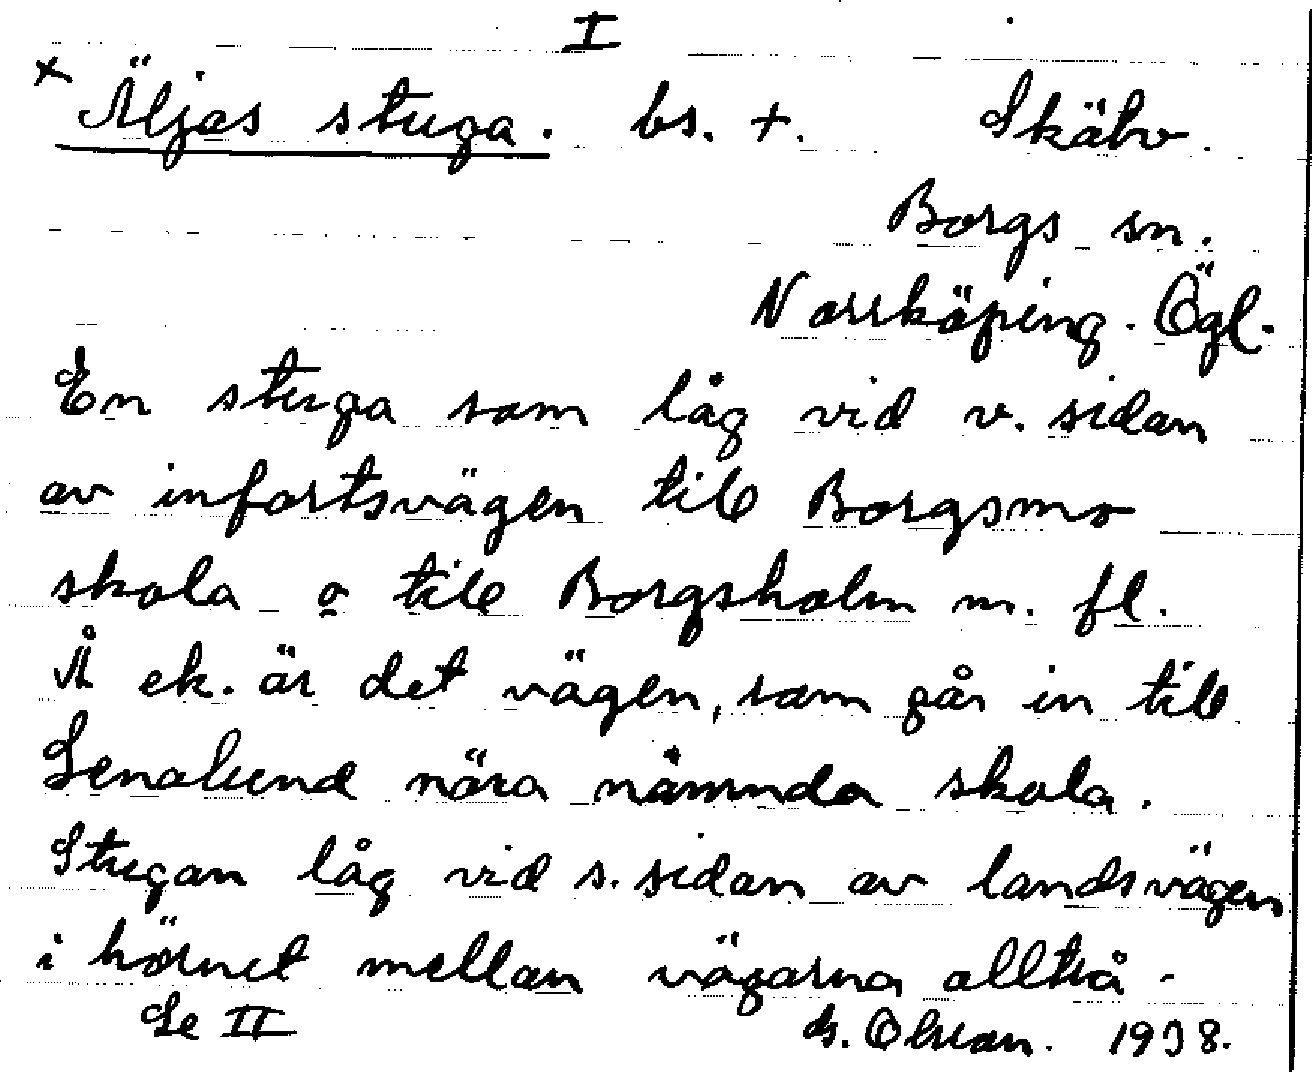 I
× Äljas stuga. bs. +. Skälv.
Borgs sn.
Norrköping. Ögl.
En stuga som låg vid v. sidan
av infortsvägen till Borgsmo
skola o till Borgsholm m. fl.
Å ek. är det vägen, som går in till
Lenalund nära nämnda skola.
Stugan låg vid s. sidan av landsvägen
i hörnet mellan vägarna alltså.
Se II
G. Olsson. 1938.